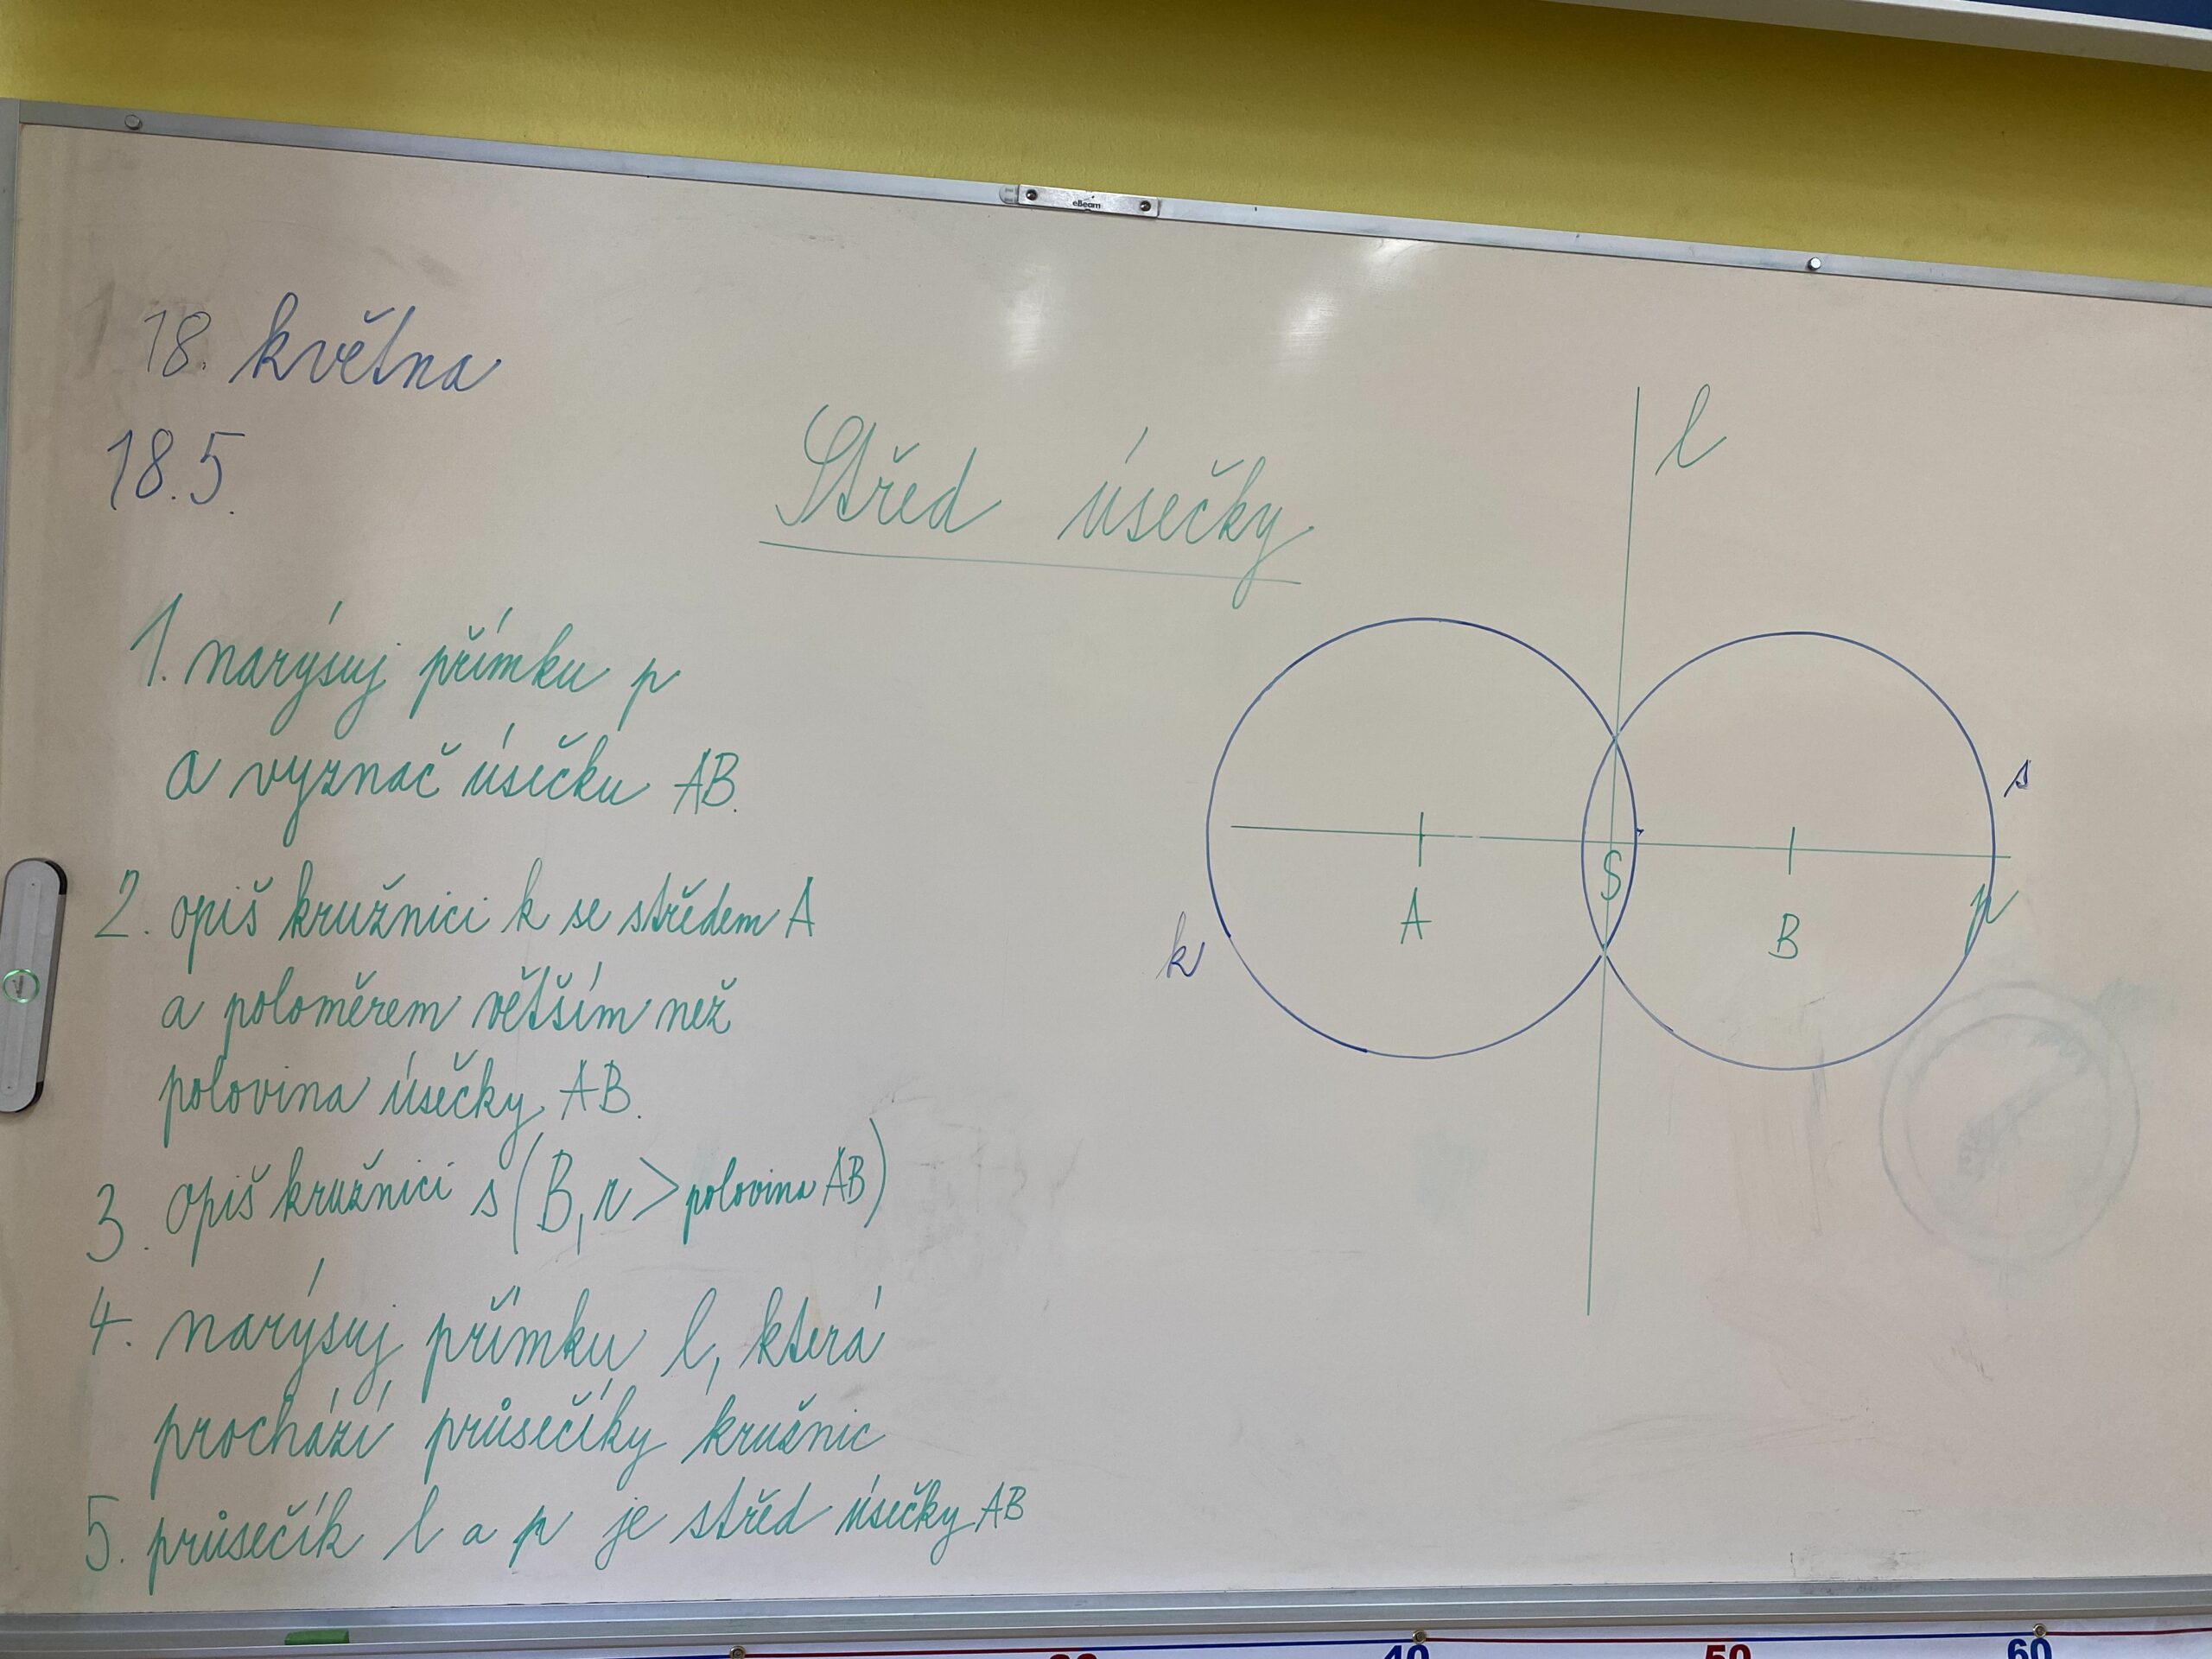 eBeam
18. května
18.5.
Střed úsečky
1. narýsuj přímku p
a vyznač úsečku AB.
2. opiš kružnici k se středem A
a poloměrem větším než
polovina úsečky AB.
3. opiš kružnici s (B, r > polovina AB)
4. narýsuj přímku l, která
prochází průsečíky kružnic
5. průsečík l a p je střed úsečky AB
l
s
S
A
B
p
k
40
50
60